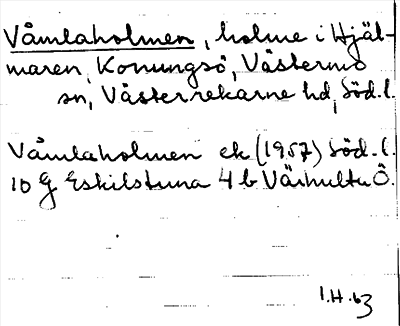 Våmlaholmen, holme i Hjäl-
maren, Konungsö, Västermo
sn, Västerrekarne hd, Söd. l.
Våmlaholmen ek (1957) Söd. l.
10 G Eskilstuna 4 b Värhulta Ö.
1.H.63